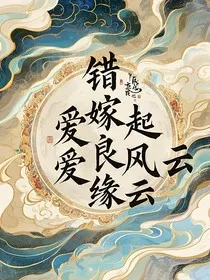 错嫁良缘
爱爱
起风云
云